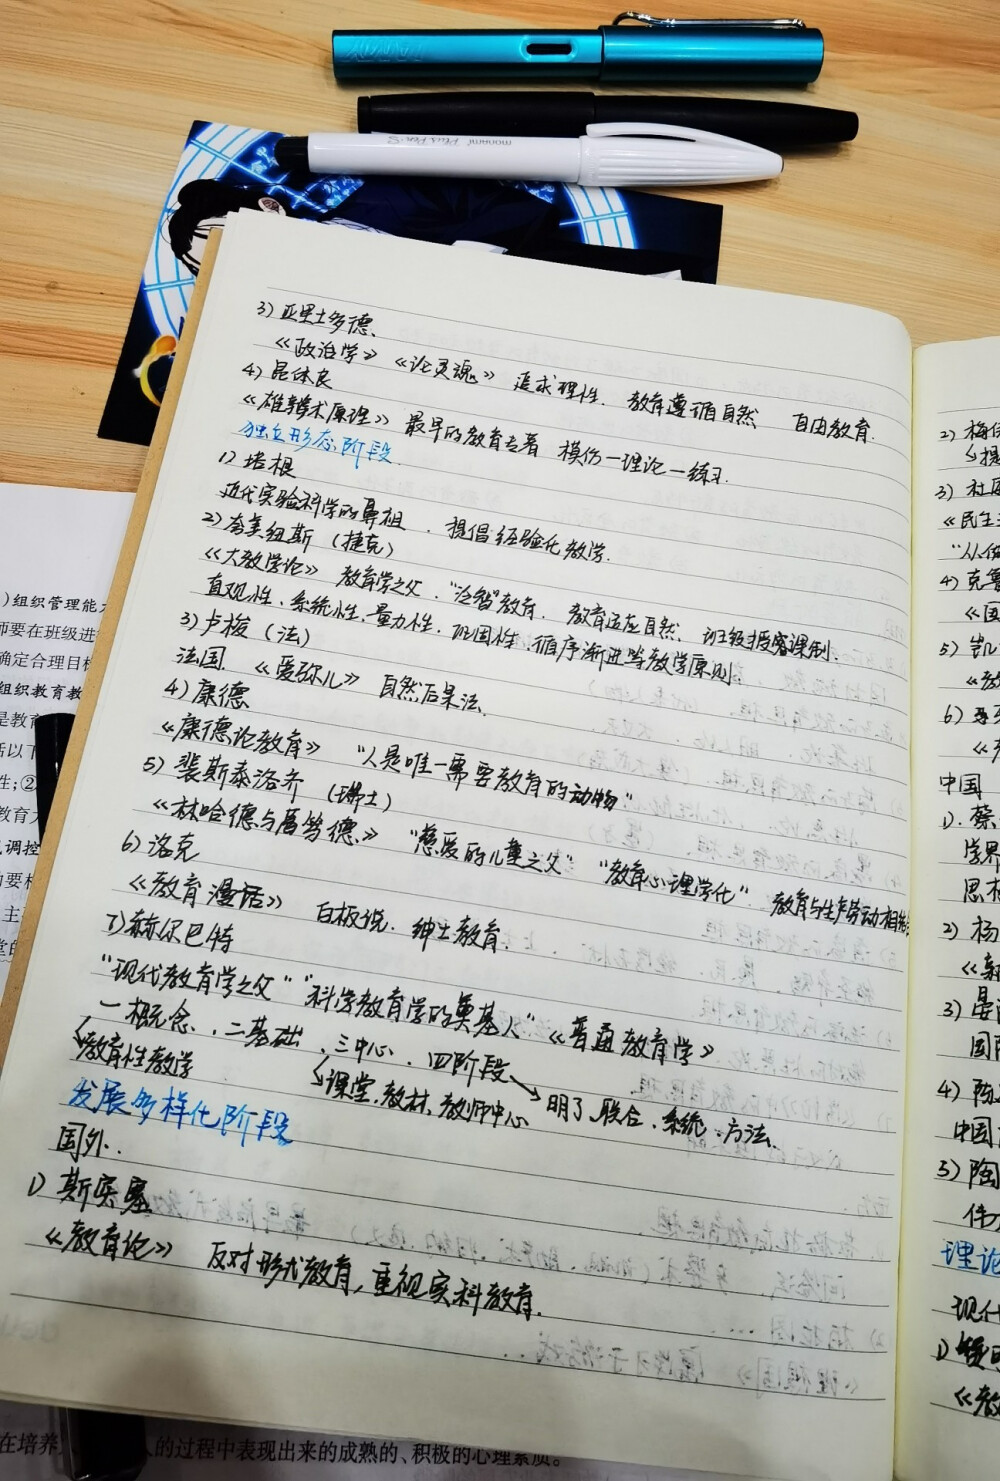 monami Plus Pen S
3) 亚里士多德、
《政治学》 《论灵魂》 追求理性. 教育遵循自然 自由教育.
4) 昆体良
《雄辩术原理》 最早的教育专著 模仿—理论—练习.
独立形态阶段
1) 培根
近代实验科学的鼻祖 . 提倡经验化教学.
2) 夸美纽斯 (捷克)
《大教学论》 教育学之父. "泛智"教育. 教育适应自然. 班级授课制.
直观性、系统性.量力性. 巩固性.循序渐进等教学原则.
3) 卢梭 (法)
法国. 《爱弥儿》 自然后果法.
4) 康德
《康德论教育》 "人是唯一需要教育的动物"
5) 裴斯泰洛齐 (瑞士)
《林哈德与葛笃德》 "慈爱的儿童之父" "教育心理学化" 教育与生产劳动相
6) 洛克
《教育漫话》 白板说. 绅士教育.
7) 赫尔巴特
"现代教育学之父" "科学教育学的奠基人" 《普通教育学》
一概念、二基础 、三中心 . 四阶段
教育性教学 课堂.教材.教师中心 明了.联合.系统.方法.
发展多样化阶段
国外.
1) 斯宾塞
《教育论》 反对形式教育,重视实科教育.
2) 梅
3) 社
《民主
4) 克鲁
《国
5) 凯
《教
6)
中国
1). 蔡
学界
思想
2) 杨
《新
3) 晏
国
4) 陈
中国
5) 陶
伟
理论
现代
1)
《教
)组织管理能
师要在班级进
确定合理目标
组织教育教
是教育
括以下
生;②
教育
调控
主
在培养 人的过程中表现出来的成熟的、积极的心理素质。